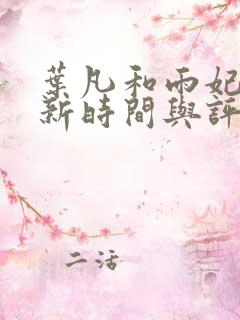 葉凡和雨妃
新時間與評
二活